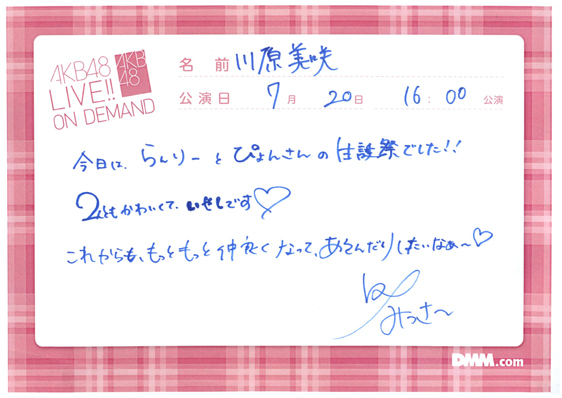 AKB48
LIVE!!
ON DEMAND
AKB
48
名 前 川原美咲
公演日 7月 20日 16:00 公演
今日は、らんりーとぴょんさんの生誕祭でした!!
2人ともかわいくて、いやしです♡
これからも、もっともっと仲良くなって、あそんだりしたいなぁ〜♡
by
みっさ〜
DMM.com